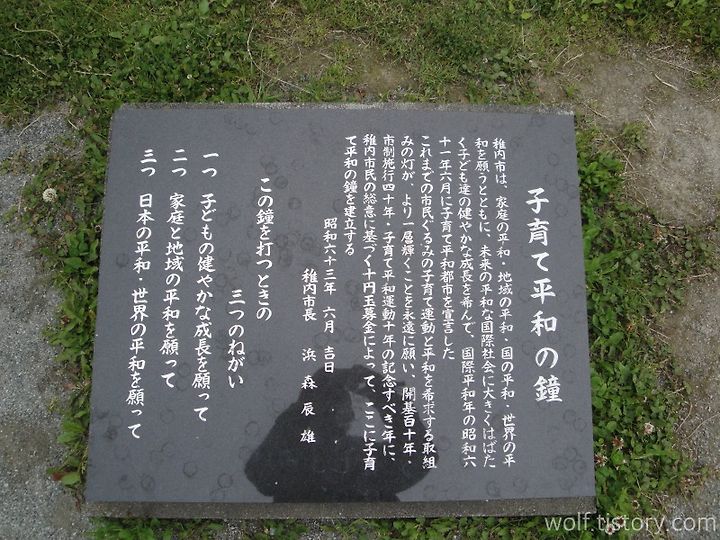 子育て平和の鐘
稚内市は、家庭の平和・地域の平和・国の平和・世界の平
和を願うとともに、未来の平和な国際社会に大きくはばた
く子ども達の健やかな成長を希んで、国際平和年の昭和六
十一年六月に子育て平和都市を宣言した
これまでの市民ぐるみの子育て運動と平和を希求する取組
みの灯が、より一層輝くことを永遠に願い、開基百十年・
市制施行四十年・子育て平和運動十年の記念すべき年に、
稚内市民の総意に基づく十円玉募金によって、ここに子育
て平和の鐘を建立する
昭和六十三年 六月 吉日
稚内市長 浜森辰雄
この鐘を打つときの
三つのねがい
一つ 子どもの健やかな成長を願って
二つ 家庭と地域の平和を願って
三つ 日本の平和 世界の平和を願って
wolf.tistory.com